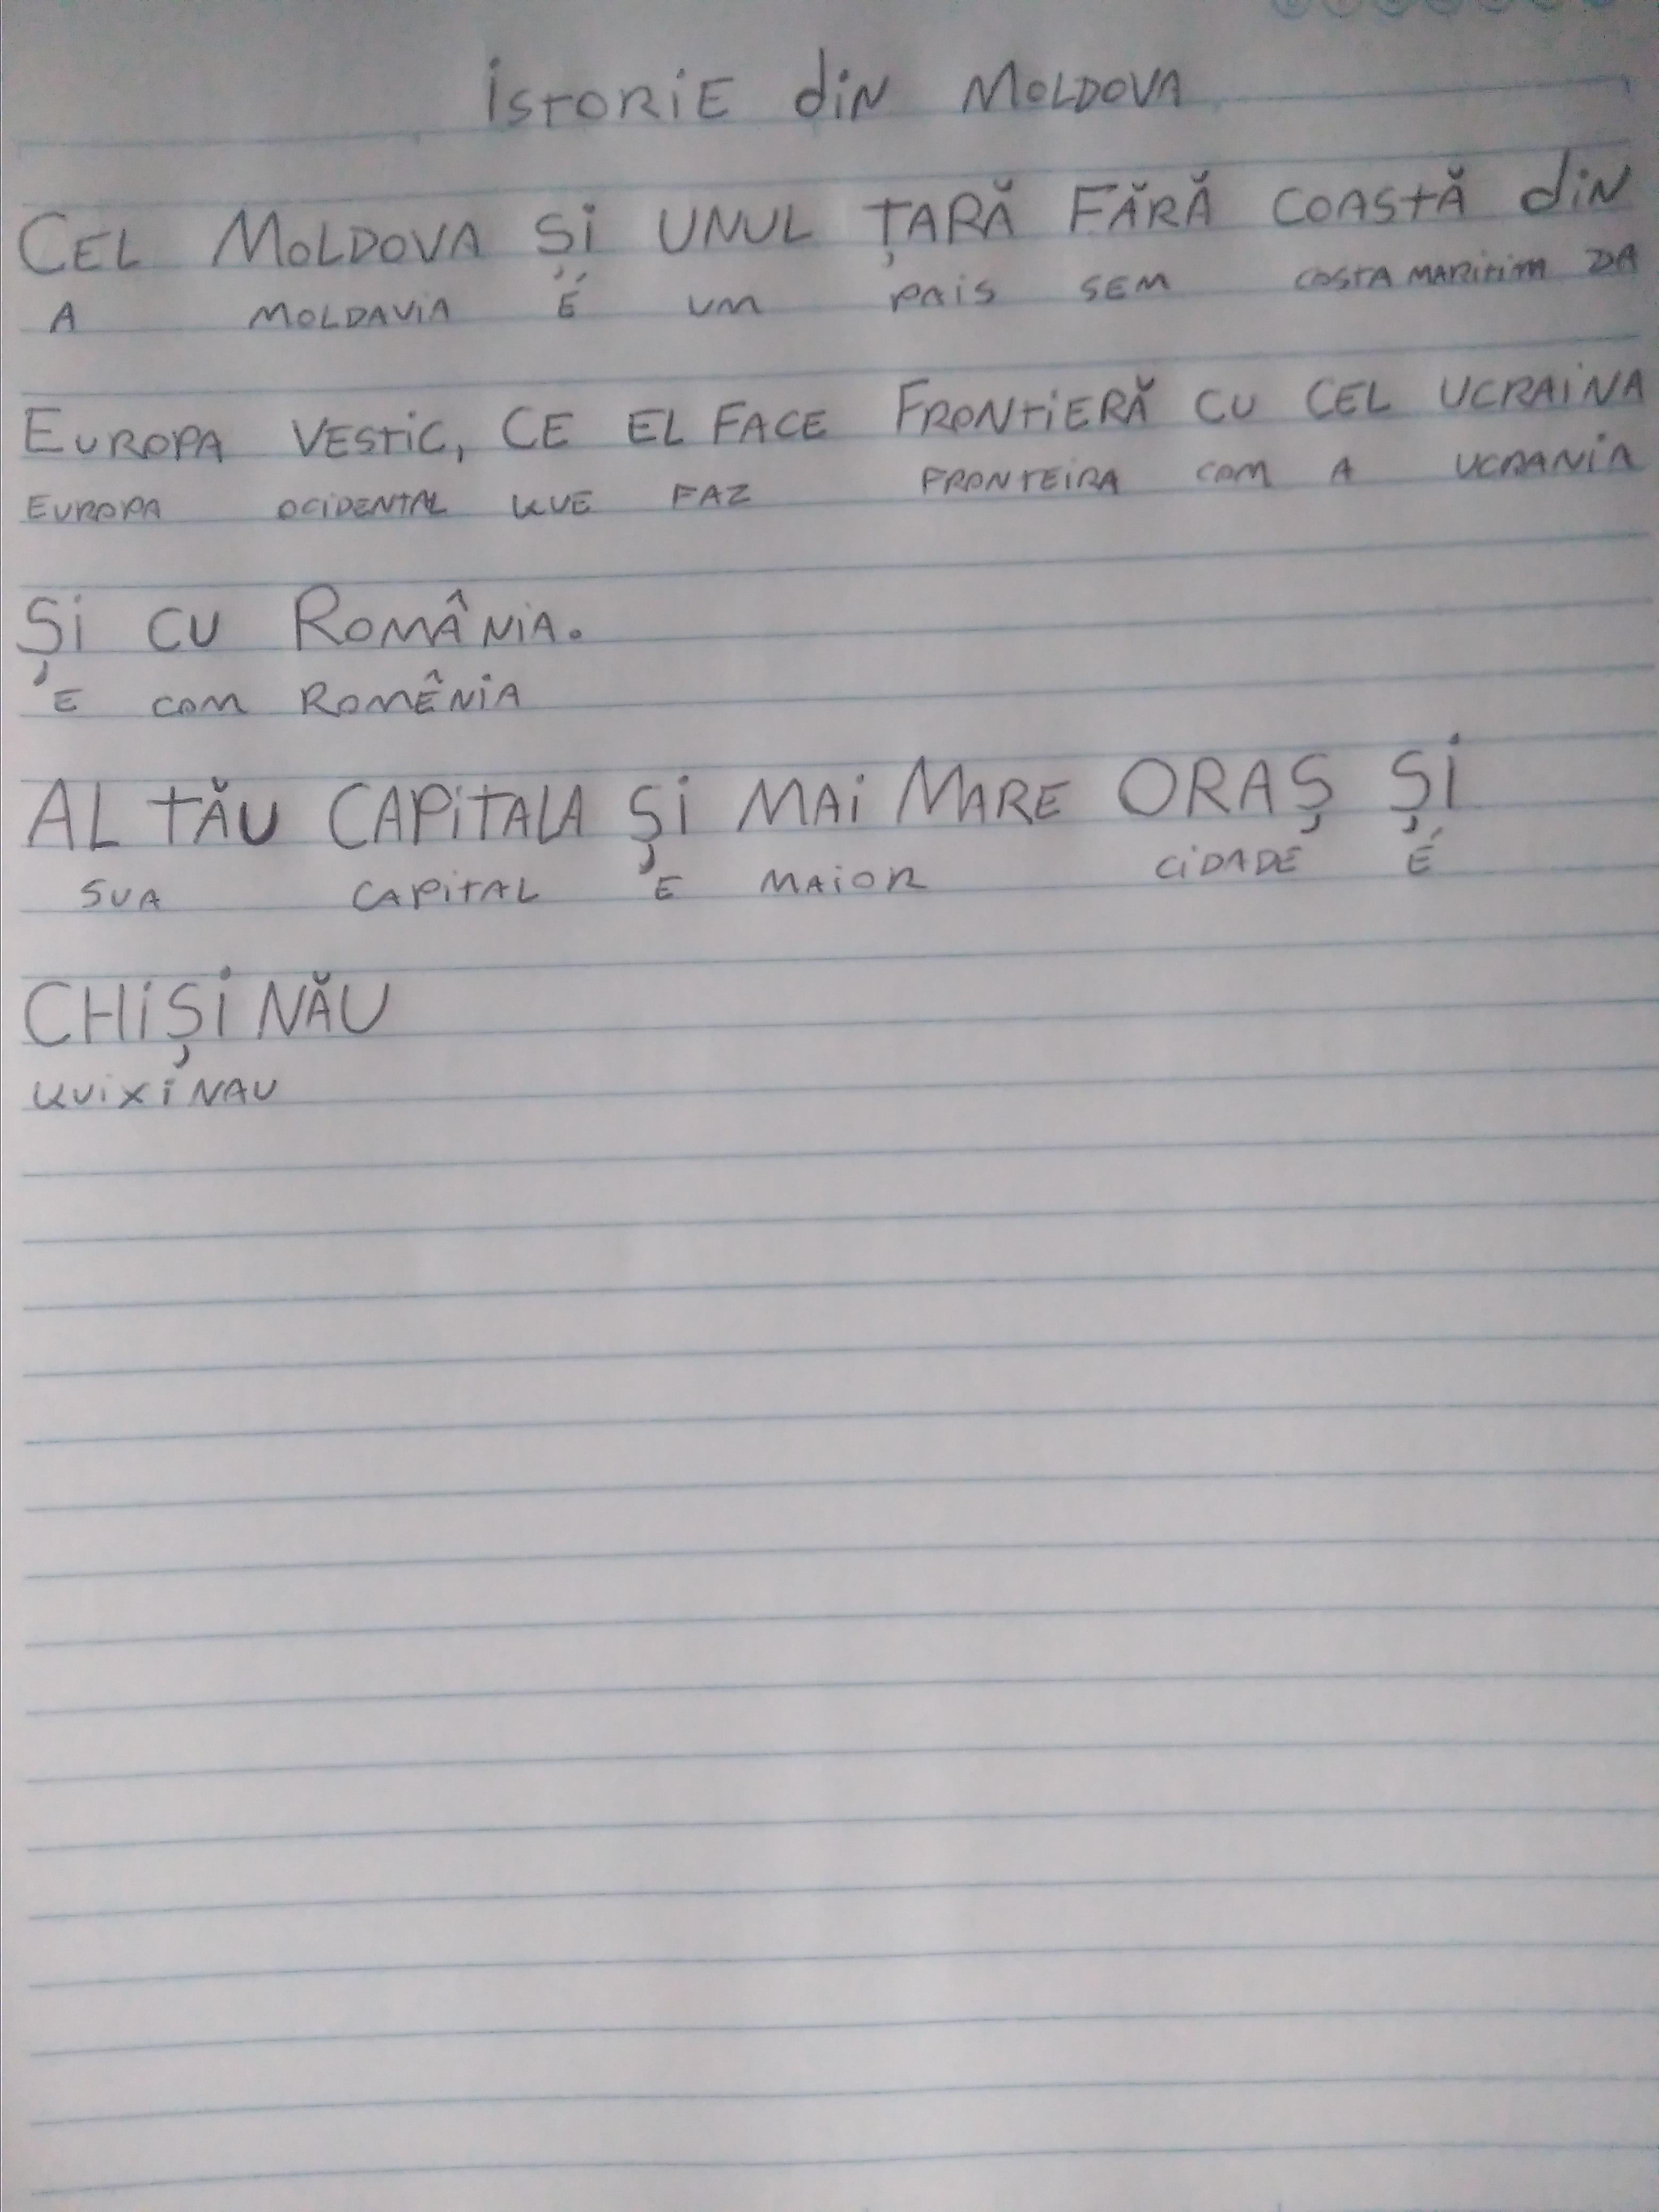 İSTORiE diN MOLDOVA
CEL MOLDOVA ȘI UNUL ȚARĂ FĂRĂ COASTĂ diN
A MOLDAVIA É UM PAIS SEM COSTA MARITIM DA
EUROPA VESTIC, CE EL FACE FRONTIERĂ CU CEL UCRAINA
EUROPA OCIDENTAL KUE FAZ FRONTEIRA COM A UCRANIA
ȘI CU ROMÂNIA.
E COM ROMÊNIA
AL TĂU CAPITALA ȘI MAI MARE ORAȘ ȘI
SUA CAPITAL E MAIOR CIDADE É
CHIȘINĂU
KUIXINAU